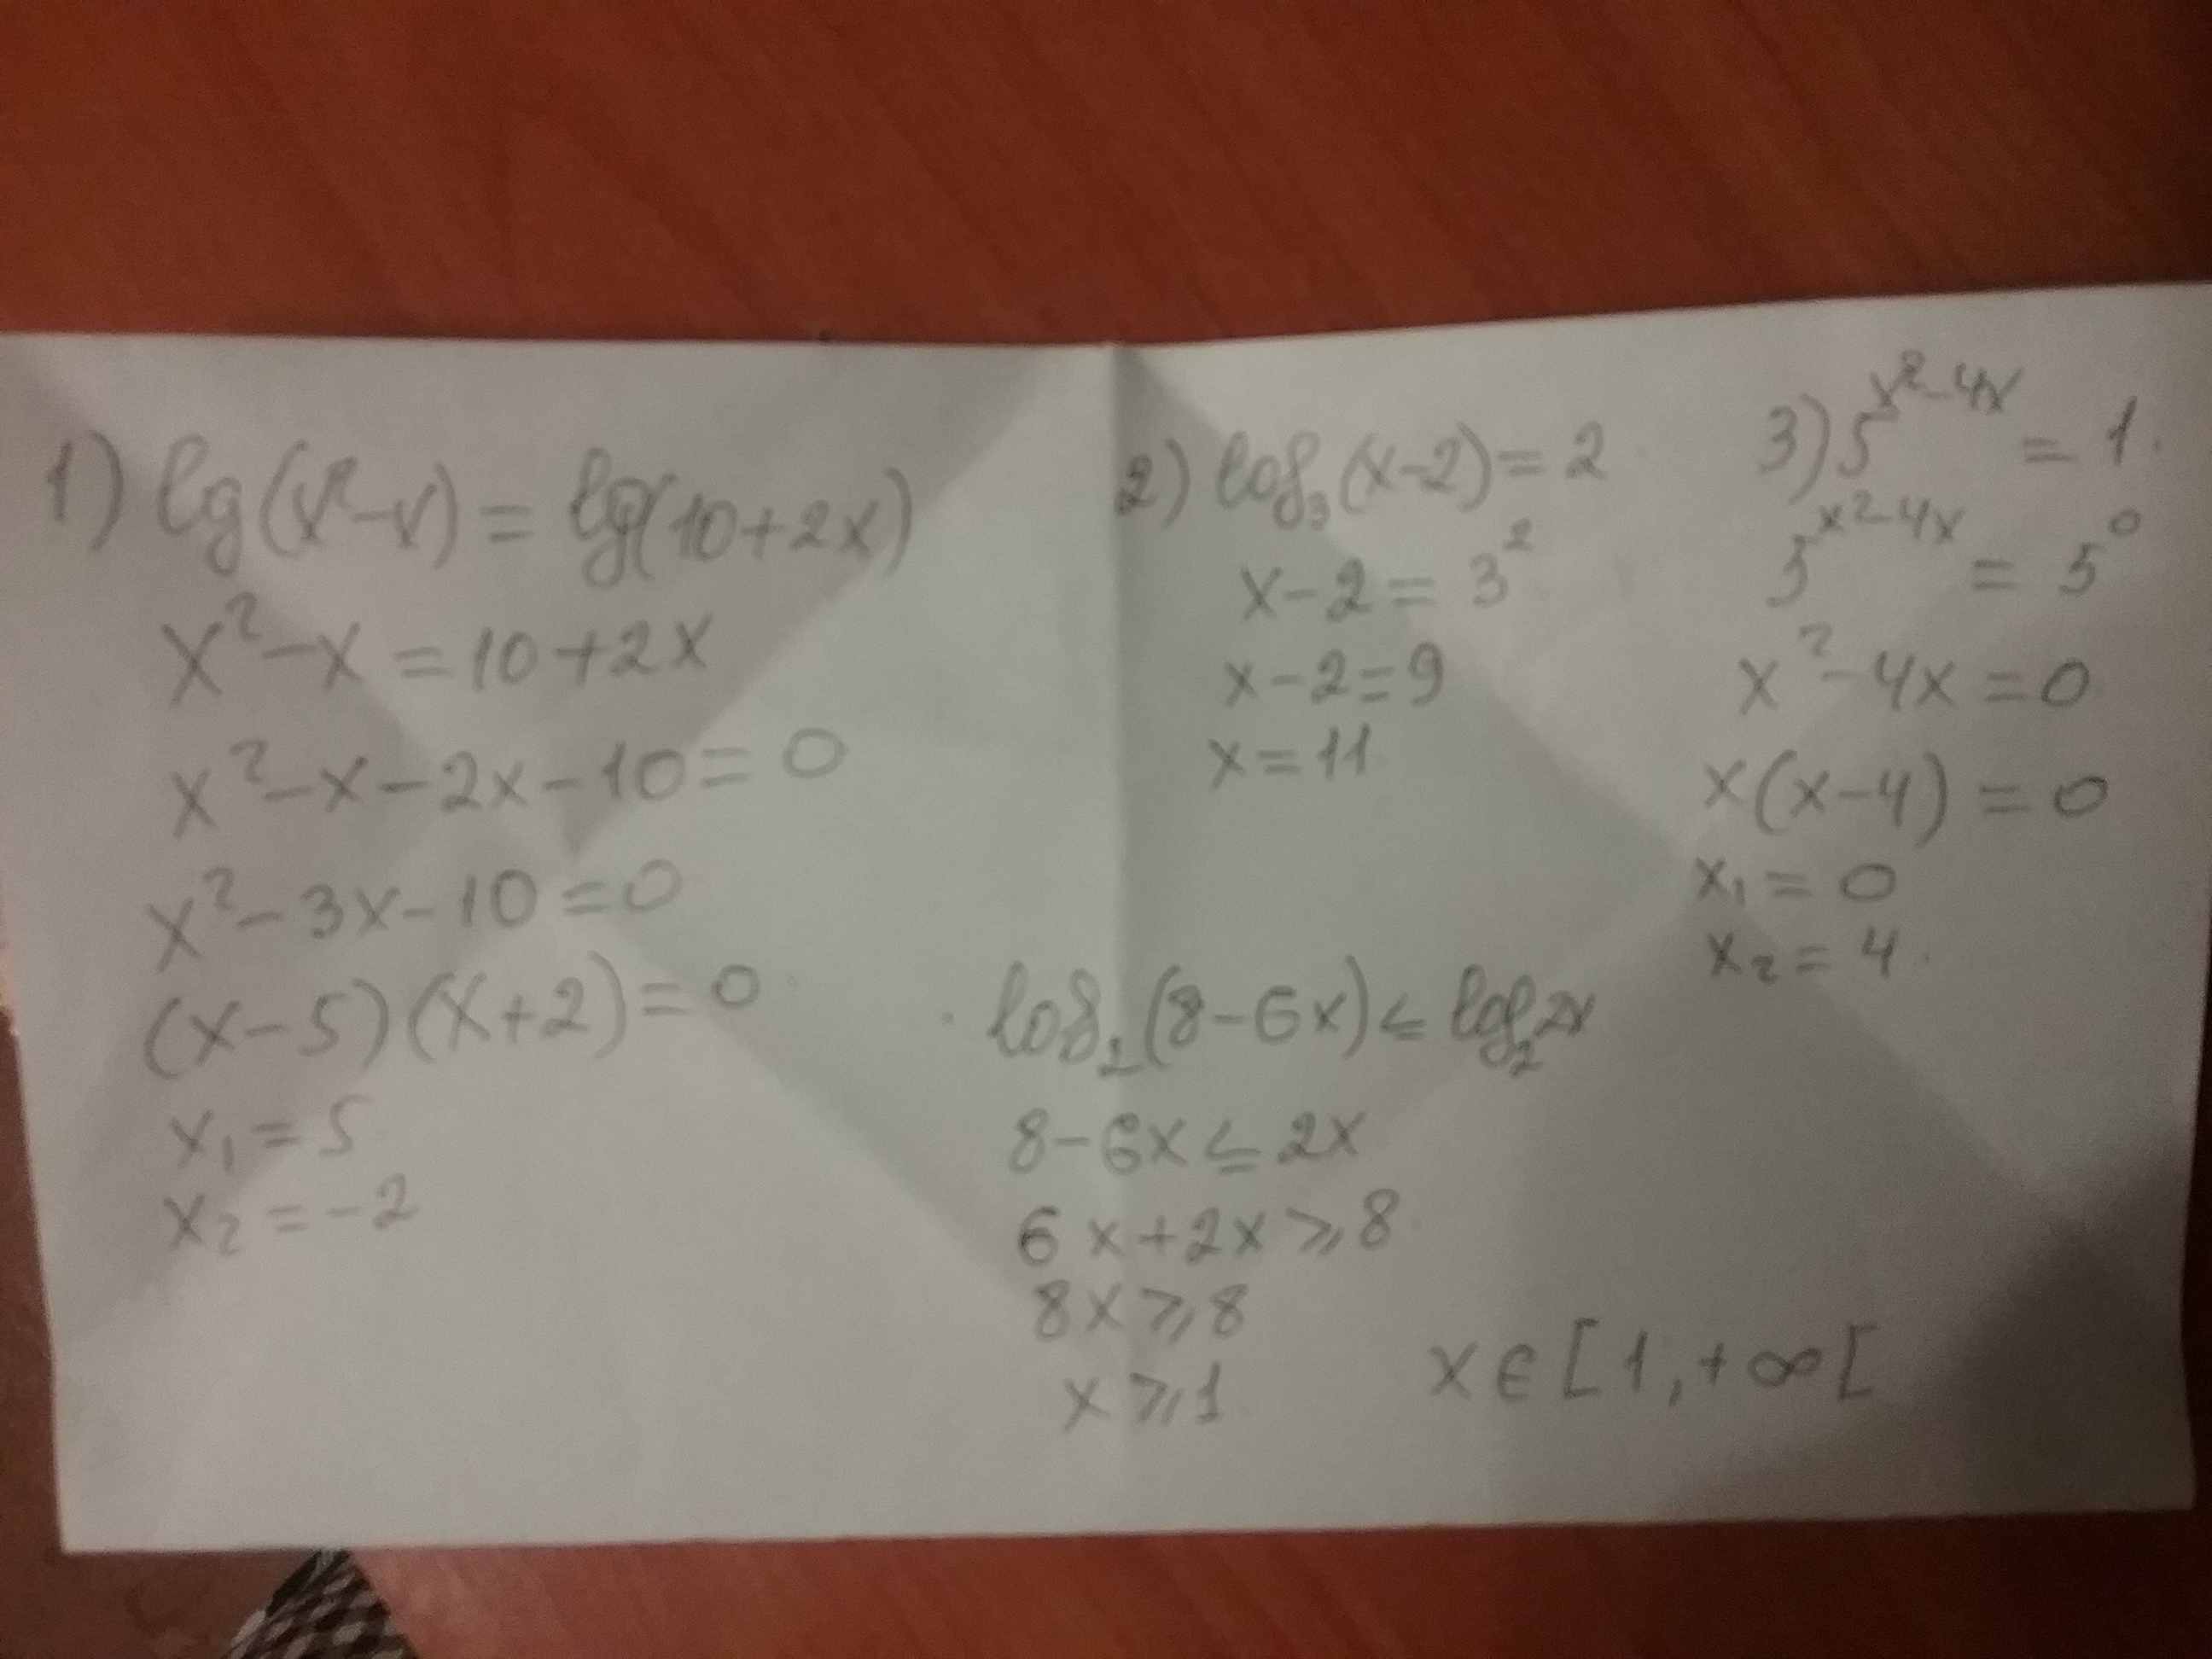 1) lg(x²-x) = lg(10+2x)
x²-x = 10+2x
x²-x-2x-10 = 0
x²-3x-10 = 0
(x-5)(x+2) = 0
x₁ = 5
x₂ = -2
2) log₃(x-2) = 2
x-2 = 3²
x-2 = 9
x = 11
3) 5^(x²-4x) = 1.
5^(x²-4x) = 5⁰
x²-4x = 0
x(x-4) = 0
x₁ = 0
x₂ = 4.
log₂(8-6x) ≤ log₂2x
8-6x ≤ 2x
6x+2x ≥ 8
8x ≥ 8
x ≥ 1 x ∈ [1, +∞[